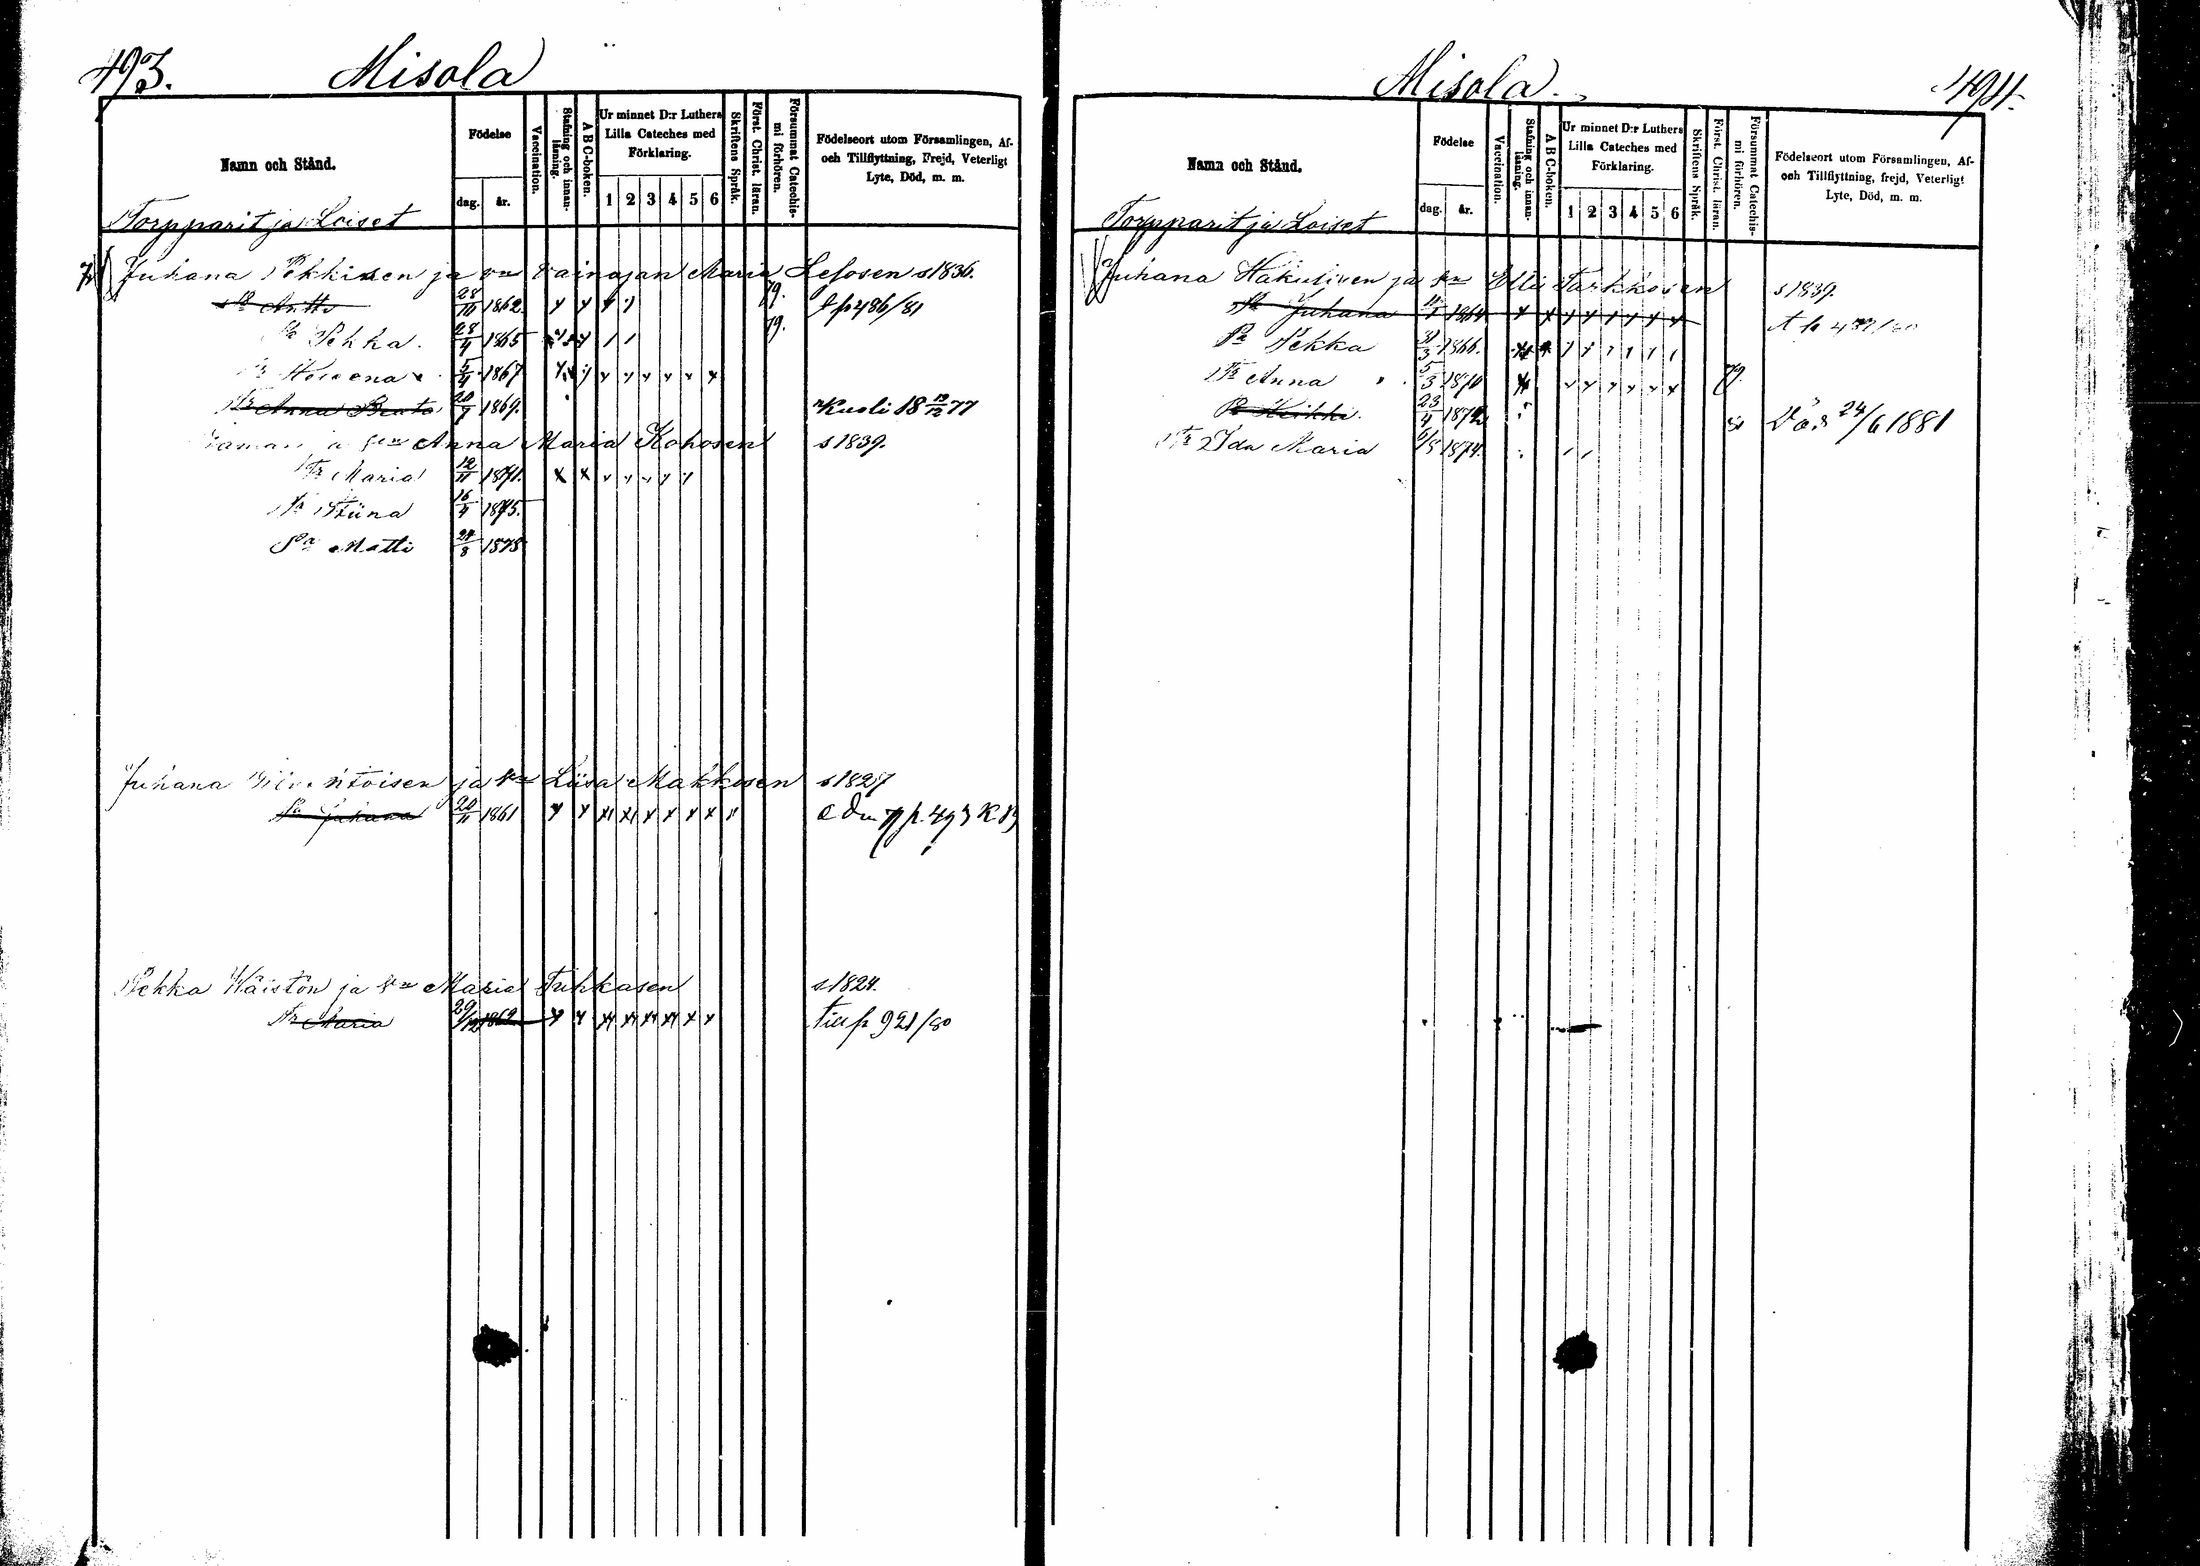 493.
Misola
Namn och Stånd.
Födelse
dag.
år.
Vaccination.
Stafning och innanläsning.
A B C-boken.
Ur minnet D:r Luthers Lilla Cateches med Förklaring.
1 2 3 4 5 6
Skriftens Språk.
Först. Christ. läran.
Försummat Catechismi förhören.
Födelseort utom Församlingen, Af- och Tillflyttning, Frejd, Veterligt Lyte, Död, m. m.
Torpparit ja Loiset
Juhana Pekkinen ja vainajan Maria Lesosen s 1836.
Antti 28/10 1862 x x 79. p 486/81
Pekka. 28/4 1865 79.
1867
Tr Anna Beata 20/9 1869. Kuoli 18 19/12 77
Saman ja Anna Maria Kohosen s 1839.
Tr Maria 12/11 1871. x x
Tr Stiina 16/4 1875.
Pa Matti 8 1878
Juhana ja Vn Liisa Makkosen s 1827
Pa Juhana 20/11 1861 p. 493
Pekka Wäistön ja Vn Maria Tuhkasen s 1824.
Tr Maria 29/12 1862 till p 921/80
Misola.
494.
Namn och Stånd.
Födelse
dag.
år.
Vaccination.
Stafning och innanläsning.
A B C-boken.
Ur minnet D:r Luthers Lilla Cateches med Förklaring.
1 2 3 4 5 6
Skriftens Språk.
Först. Christ. läran.
Försummat Catechismi förhören.
Födelseort utom Församlingen, Af- och Tillflyttning, frejd, Veterligt Lyte, Död, m. m.
Torpparit ja Loiset
Juhana Hakulisen ja Vn Elli Tarkkosen s 1839.
Pa Juhana 1864
Pa Pekka 31/3 1866.
Tr Anna 5/3 1870 79.
Pa Heikki. 23/4 1872 Död 24/6 1881
Tr Ida Maria 1874.